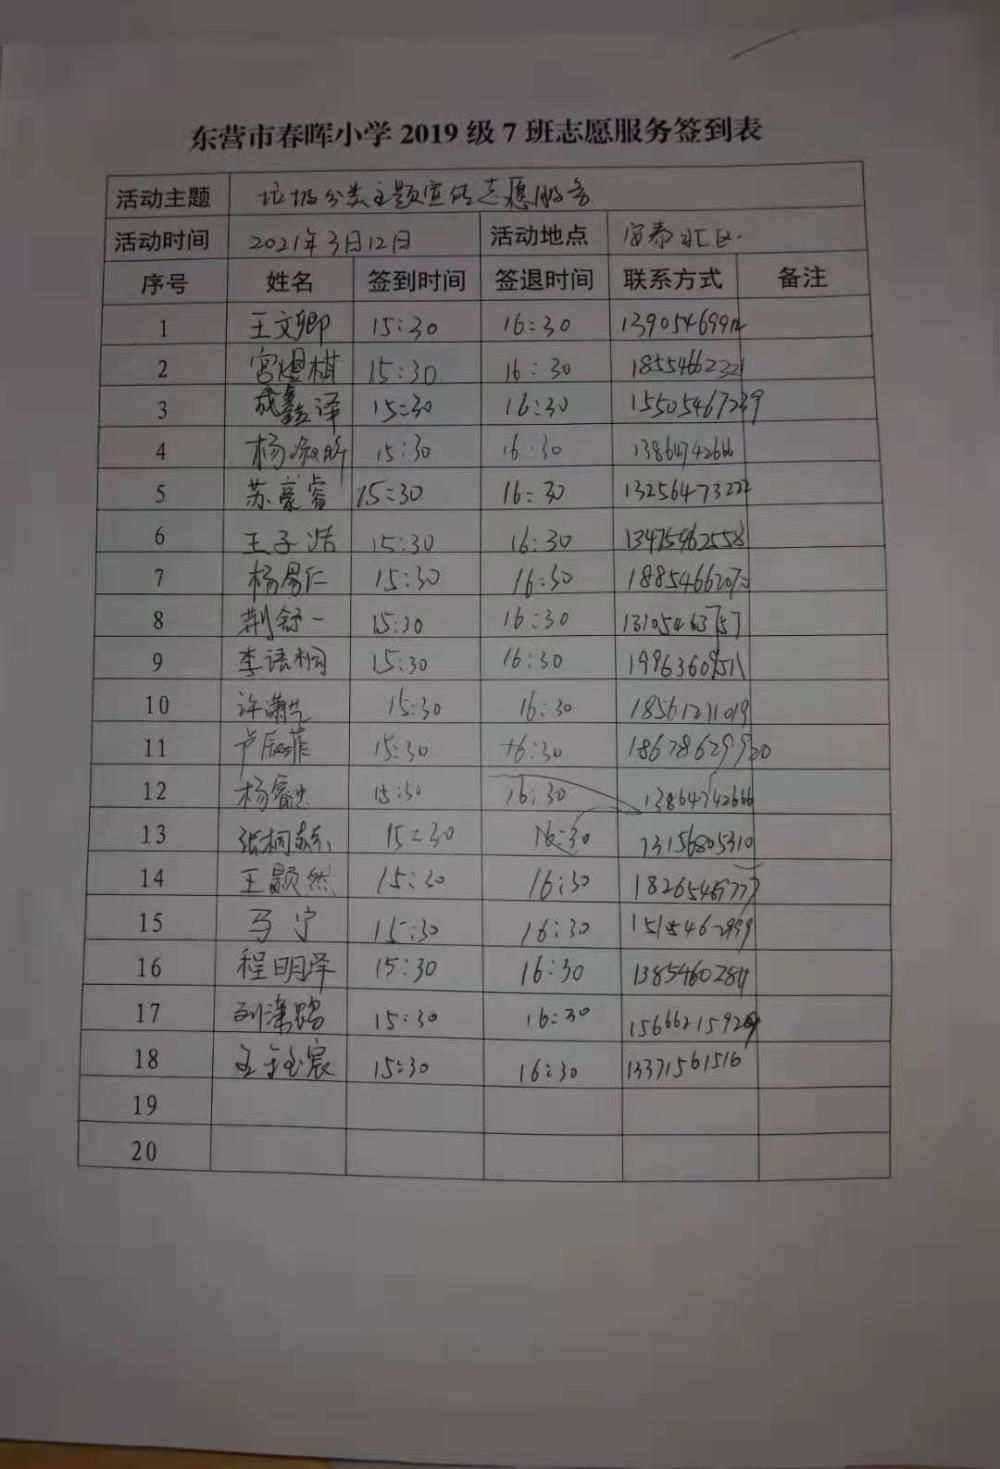 东营市春晖小学2019级7班志愿服务签到表
活动主题 垃圾分类主题宣传志愿服务
活动时间 2021年3月12日 活动地点 富泰社区.
序号 姓名 签到时间 签退时间 联系方式 备注
1 王文卿 15:30 16:30
2 宫煜棋 15:30 16:30 18554662321
3 成鑫泽 15:30 16:30 15505467239
4 杨淑昕 15:30 16:30 13864742666
5 苏豪睿 15:30 16:30 13256473222
6 王子浩 15:30 16:30 13475462558
7 杨易仁 15:30 16:30
8 荆舒一 15:30 16:30 13105463757
9 李语桐 15:30 16:30 19963609511
10 许潇艺 15:30 16:30 18561211019
11 卢辰菲 15:30 16:30 18678629920
12 杨睿 15:30 16:30 13864742666
13 张桐 15:30 16:30 13156805310
14 王颢然 15:30 16:30
15 马宁 15:30 16:30
16 程明泽 15:30 16:30
17 刘潇 15:30 16:30
18 王钰宸 15:30 16:30 13371561516
19
20